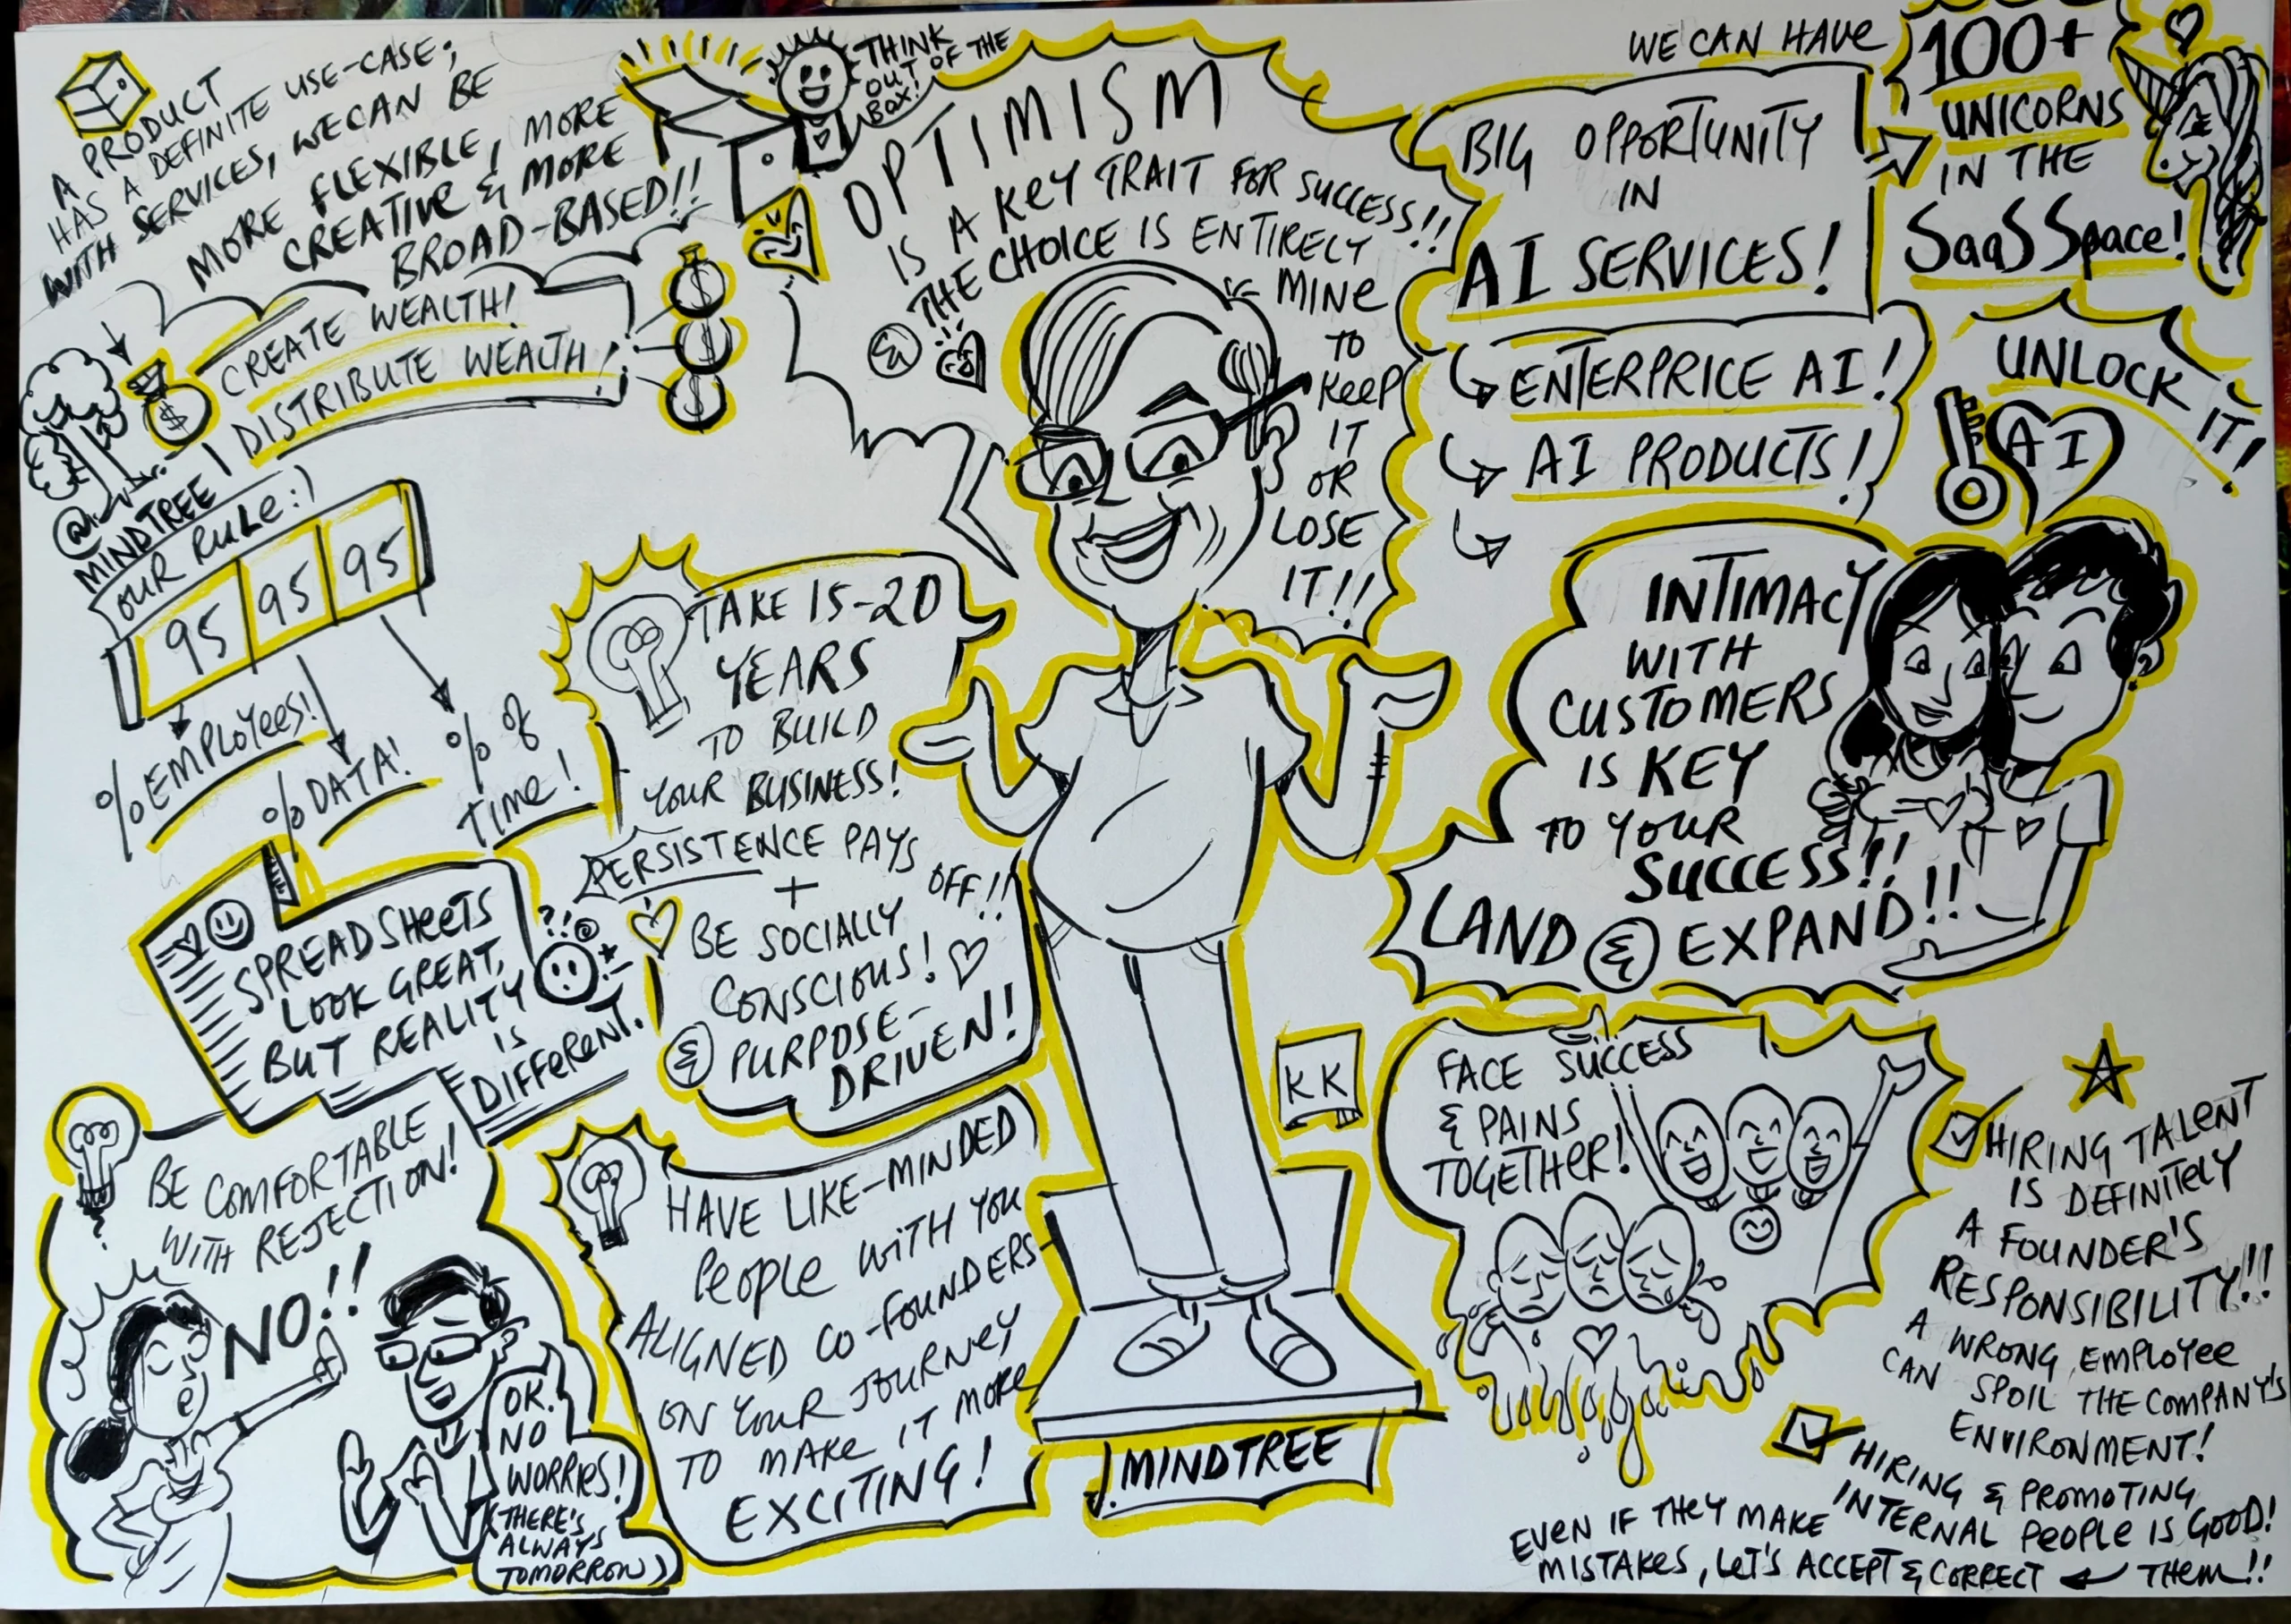 A PRODUCT
HAS A DEFINITE USE-CASE;
WITH SERVICES, WE CAN BE
MORE FLEXIBLE, MORE
CREATIVE & MORE
BROAD-BASED!!
THINK
OUT OF THE
BOX!
CREATE WEALTH!
DISTRIBUTE WEALTH!
$
$
$
$
@
MINDTREE
OUR RULE:)
95 95 95
% EMPLOYEES!
% DATA!
% OF
TIME!
SPREADSHEETS
LOOK GREAT,
BUT REALITY
IS
DIFFERENT.
??!@
BE COMFORTABLE
WITH REJECTION!
NO!!
OK.
NO
WORRIES!
(THERE'S
ALWAYS
TOMORROW)
OPTIMISM
IS A KEY TRAIT FOR SUCCESS!!
THE CHOICE IS ENTIRELY
MINE
TO
KEEP
IT
OR
LOSE
IT!!
&
TAKE 15-20
YEARS
TO BUILD
YOUR BUSINESS!
PERSISTENCE PAYS
OFF!!
+
BE SOCIALLY
CONSCIOUS!
& PURPOSE-
DRIVEN!
HAVE LIKE-MINDED
PEOPLE WITH YOU
ALIGNED CO-FOUNDERS
ON YOUR JOURNEY
TO MAKE IT MORE
EXCITING!
KK
MINDTREE
BIG OPPORTUNITY
IN
AI SERVICES!
ENTERPRICE AI!
AI PRODUCTS!
WE CAN HAVE
100+
UNICORNS
IN THE
SaaS Space!
UNLOCK
IT!
AI
INTIMACY
WITH
CUSTOMERS
IS KEY
TO YOUR
SUCCESS!!
LAND & EXPAND!!
FACE SUCCESS
& PAINS
TOGETHER!
HIRING TALENT
IS DEFINITELY
A FOUNDER'S
RESPONSIBILITY!!
A WRONG EMPLOYEE
CAN SPOIL THE COMPANY'S
ENVIRONMENT!
HIRING & PROMOTING
INTERNAL PEOPLE IS GOOD!
EVEN IF THEY MAKE
MISTAKES, LET'S ACCEPT & CORRECT
THEM!!